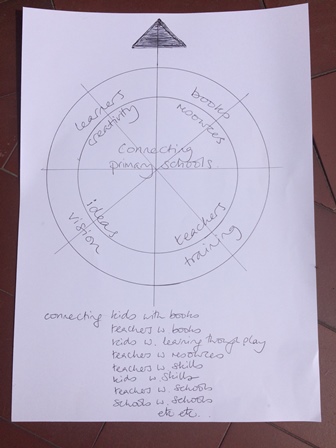 learners
creativity
books
resources
Connecting
primary schools
ideas
vision
teachers
training
connecting kids with books
teachers w books
kids w. learning through play
teachers w resources
teachers w skills
kids w skills
teachers w. schools
schools w. schools
etc etc...